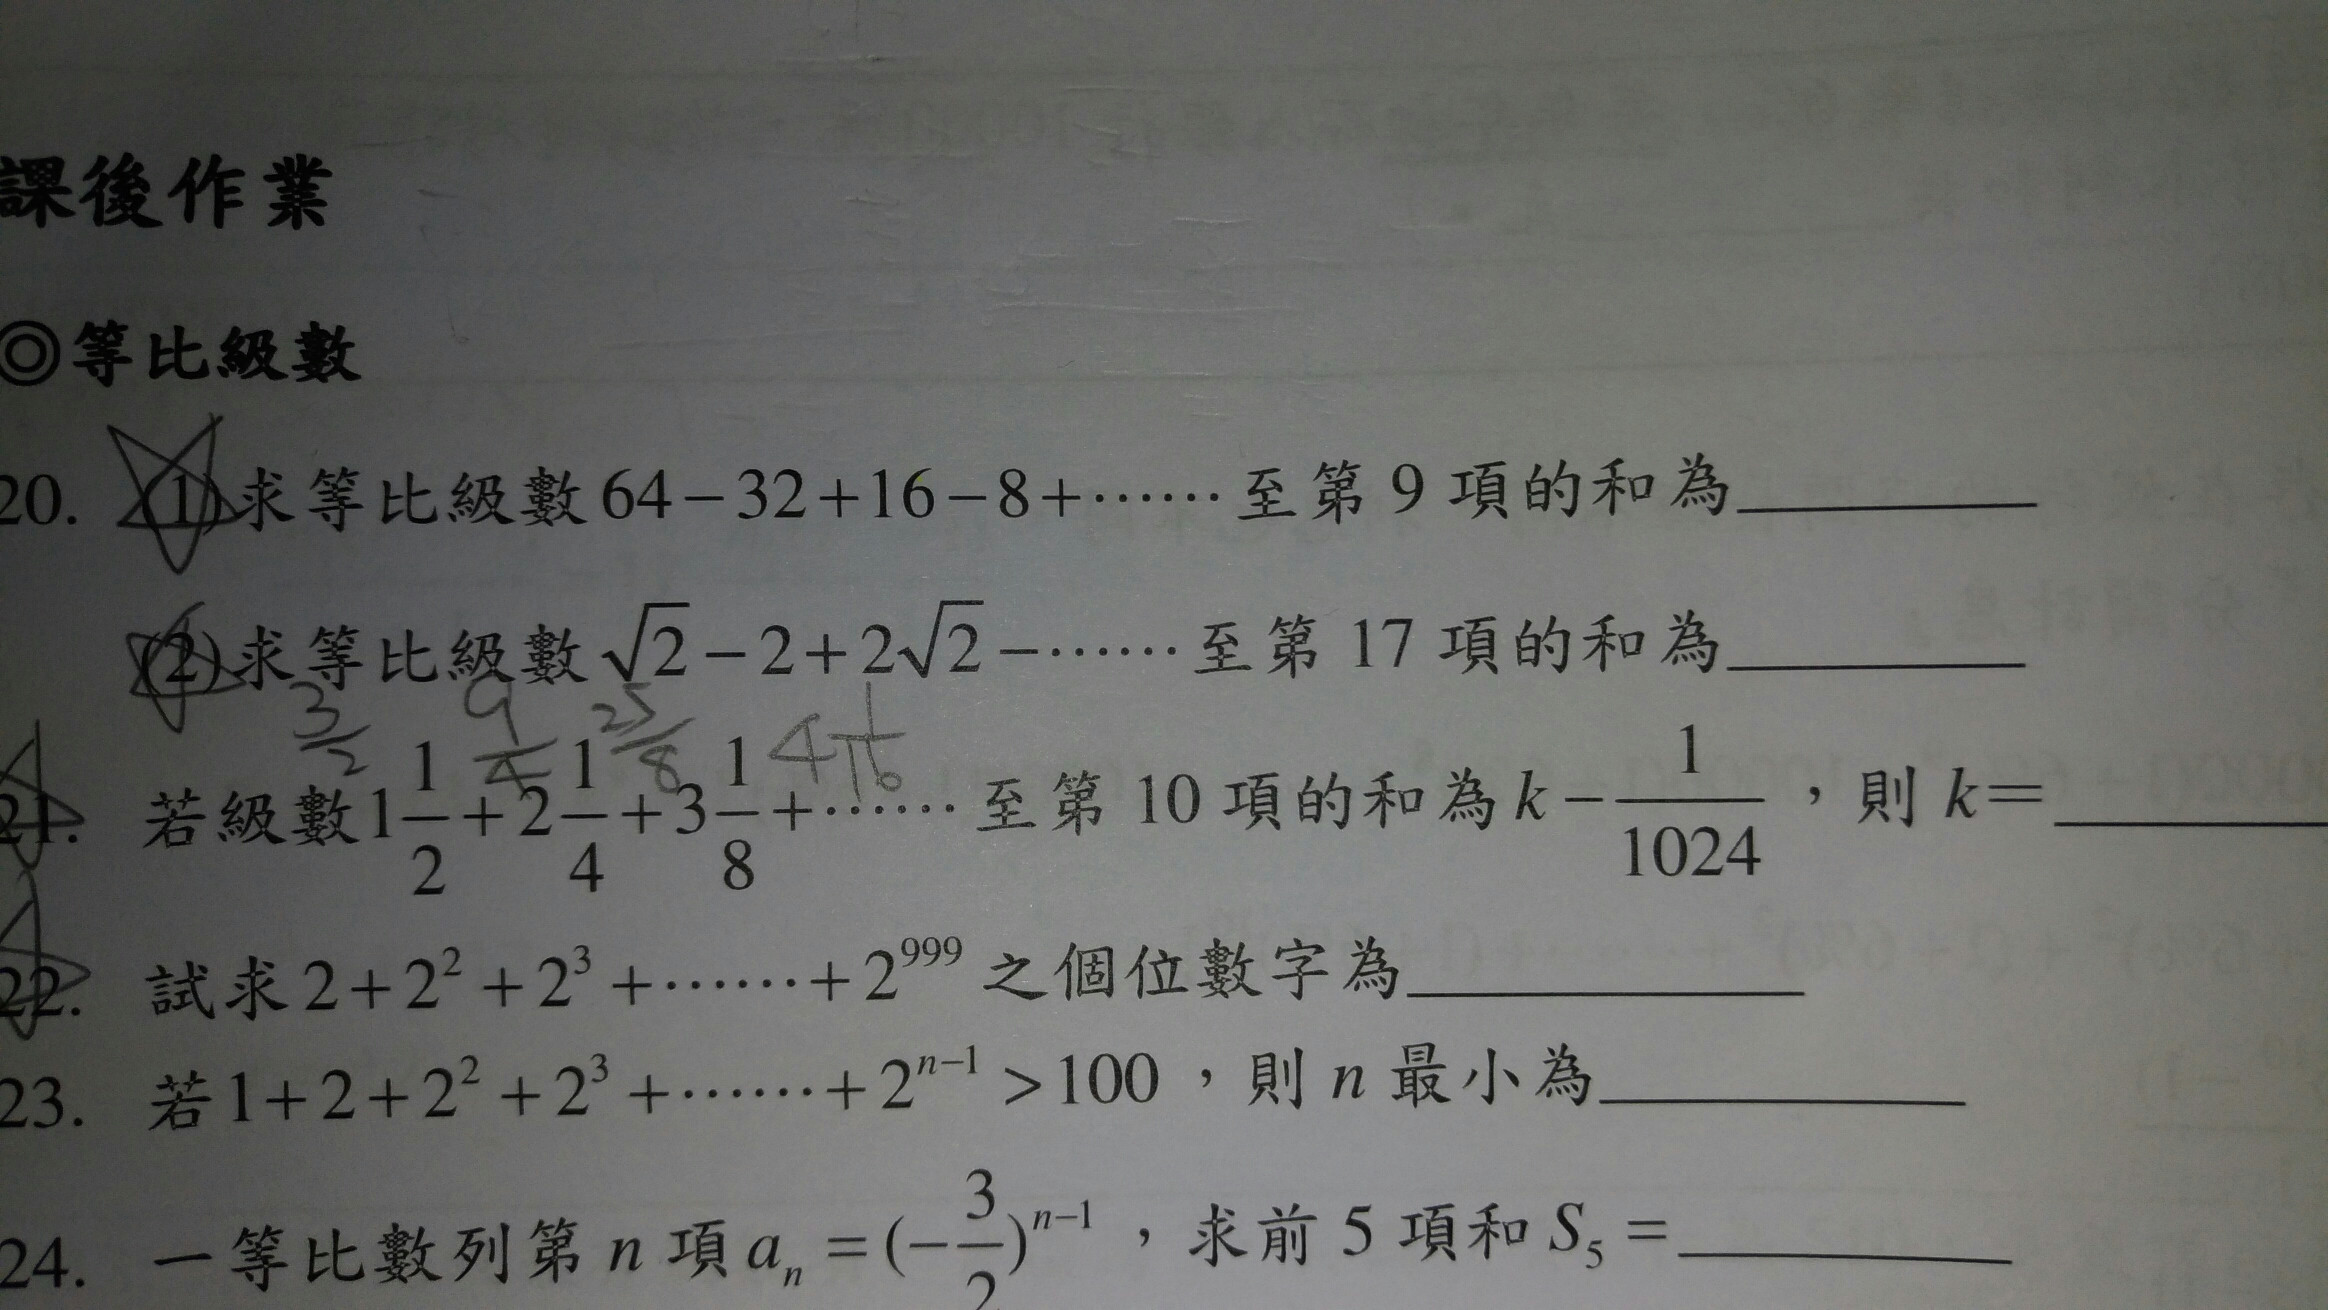 課後作業
◎等比級數
20. (1)求等比級數64-32+16-8+……至第 9 項的和為________
(2)求等比級數√2-2+2√2-……至第 17 項的和為________
3/2 9/4 25/8 4 1/16
21. 若級數1 1/2+2 1/4+3 1/8+……至第 10 項的和為k-1/1024，則 k=________
22. 試求2+2²+2³+……+2⁹⁹⁹之個位數字為________
23. 若1+2+2²+2³+……+2ⁿ⁻¹>100，則 n 最小為________
24. 一等比數列第 n 項aₙ=(-3/2)ⁿ⁻¹，求前 5 項和 S₅=________